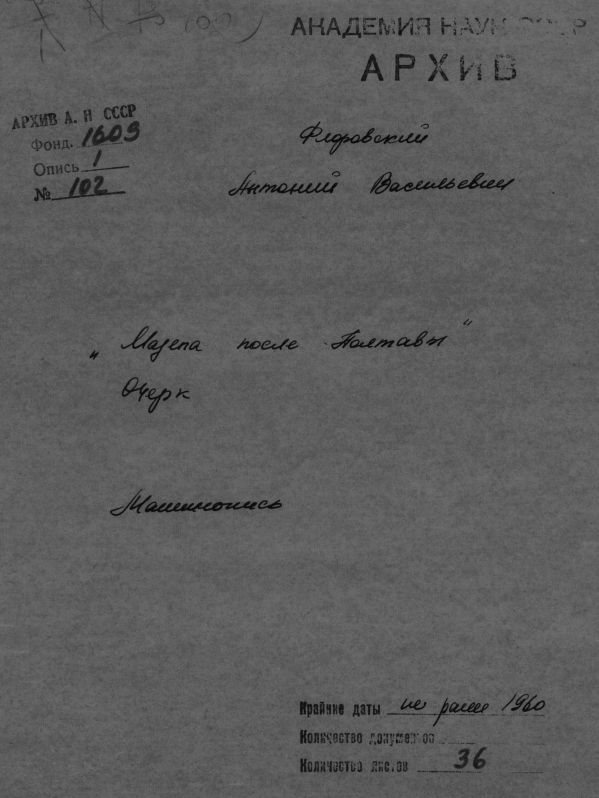 АКАДЕМИЯ НАУК СССР
АРХИВ
АРХИВ А. Н СССР
Фонд. 1609
Опись 1
№ 102
Флоровский
Антоний Васильевич
„Мазепа после Полтавы“
Очерк
Машинопись
Крайние даты не ранее 1960
Количество документов
Количество листов 36